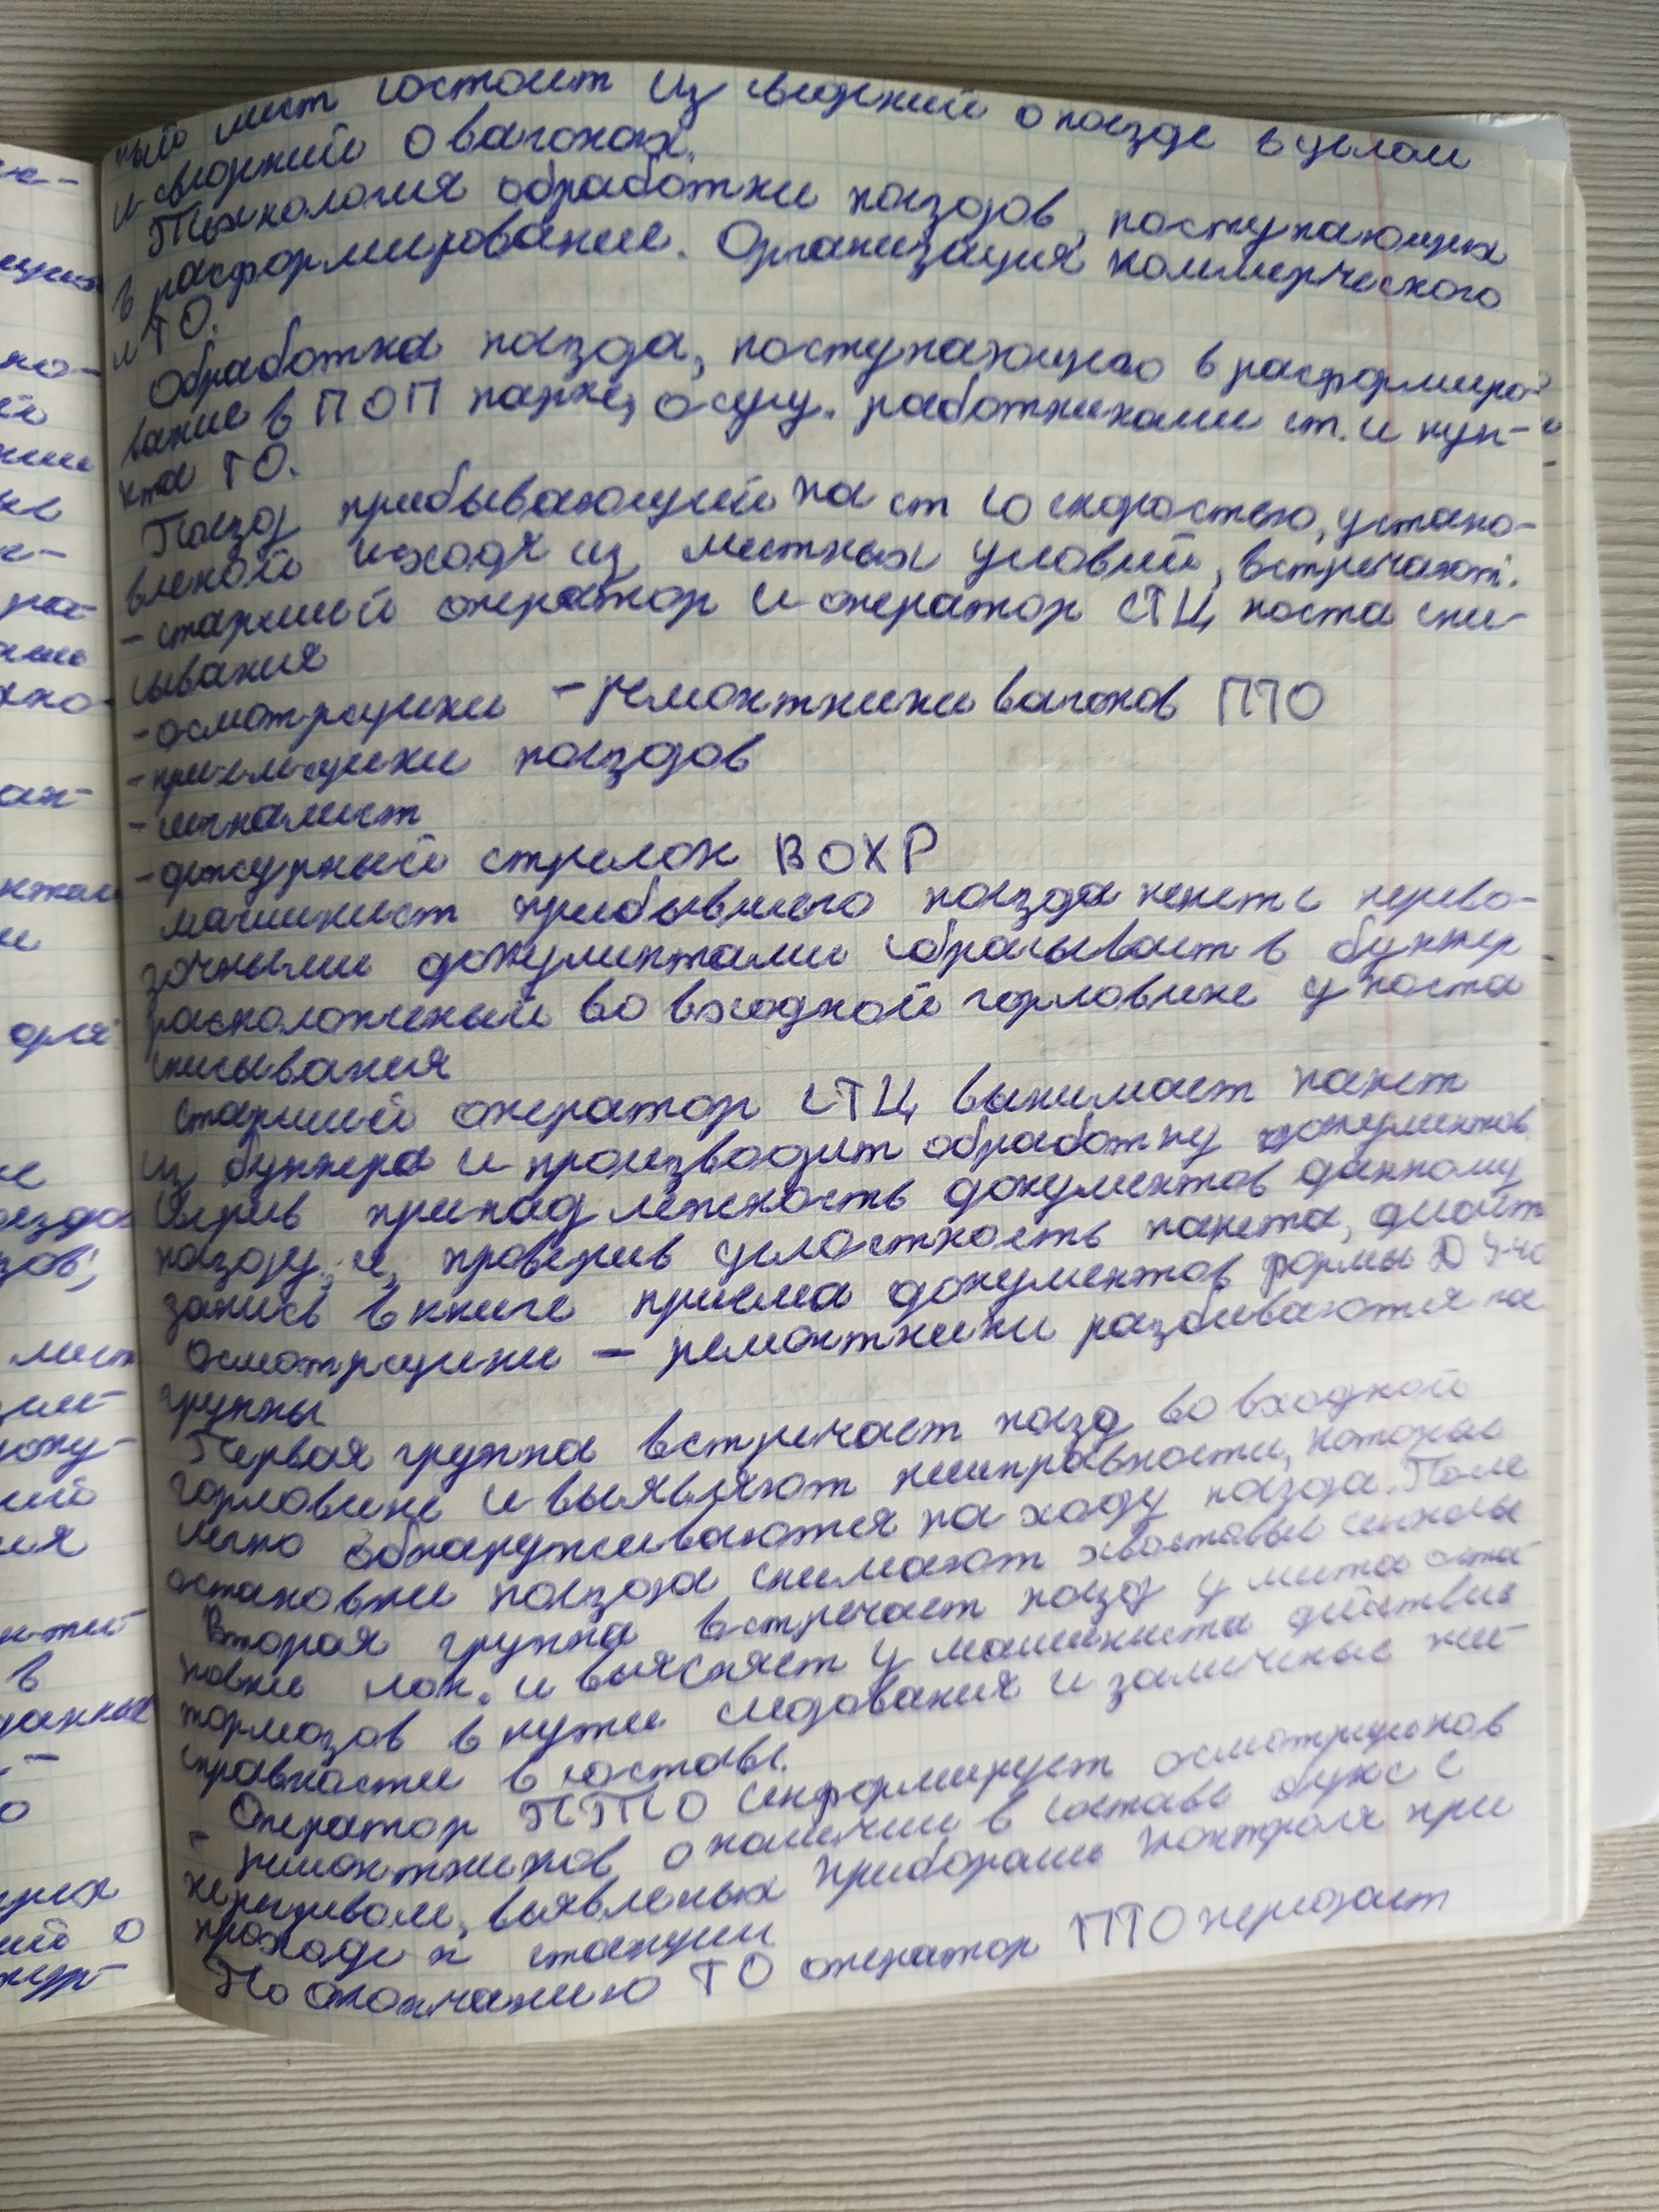 ный лист состоит из сведений о поезде в целом
и сведений о вагонах.
Технология обработки поездов, поступающих
в расформирование. Организация коммерческого
и ТО.
Обработка поезда, поступающего в расформиро-
вание в ПОП парке, осущ. работниками ст. и пун-
кта ТО.
Поезд прибывающий на ст со скоростью, устано-
вленой исходя из местных условий, встречают:
- старший оператор и оператор СТЦ поста спи-
сывания
- осмотрщики - ремонтники вагонов ПТО
- приемщики поездов
- сигналист
- дежурный стрелок ВОХР
машинист прибывшего поезда пакет с перево-
зочными документами сбрасывает в бункер
расположеный во входной горловине у поста
списывания
Старший оператор СТЦ вынимает пакет
из бункера и производит обработку документов
Сверив принадлежность документов данному
поезду, и, проверив целостность пакета, делает
запись в книге приема документов формы
Осмотрщики - ремонтники разбиваются на
группы
Первая группа встречает поезд во входной
горловине и выявляют неисправности, которые
легко обнаруживаются на ходу поезда. После
остановки поезда снимают хвостовые сигналы
Вторая группа встречает поезд у места оста-
новки лок. и выясняет у машиниста действия
тормозов в пути следования и замеченые неи-
справности в составе.
Оператор ПТО информирует осмотрщиков
- ремонтников о наличии в составе букс с
перегревом, выявленых приборами контроля при
проходе к станции
По окончанию ТО оператор ПТО передает